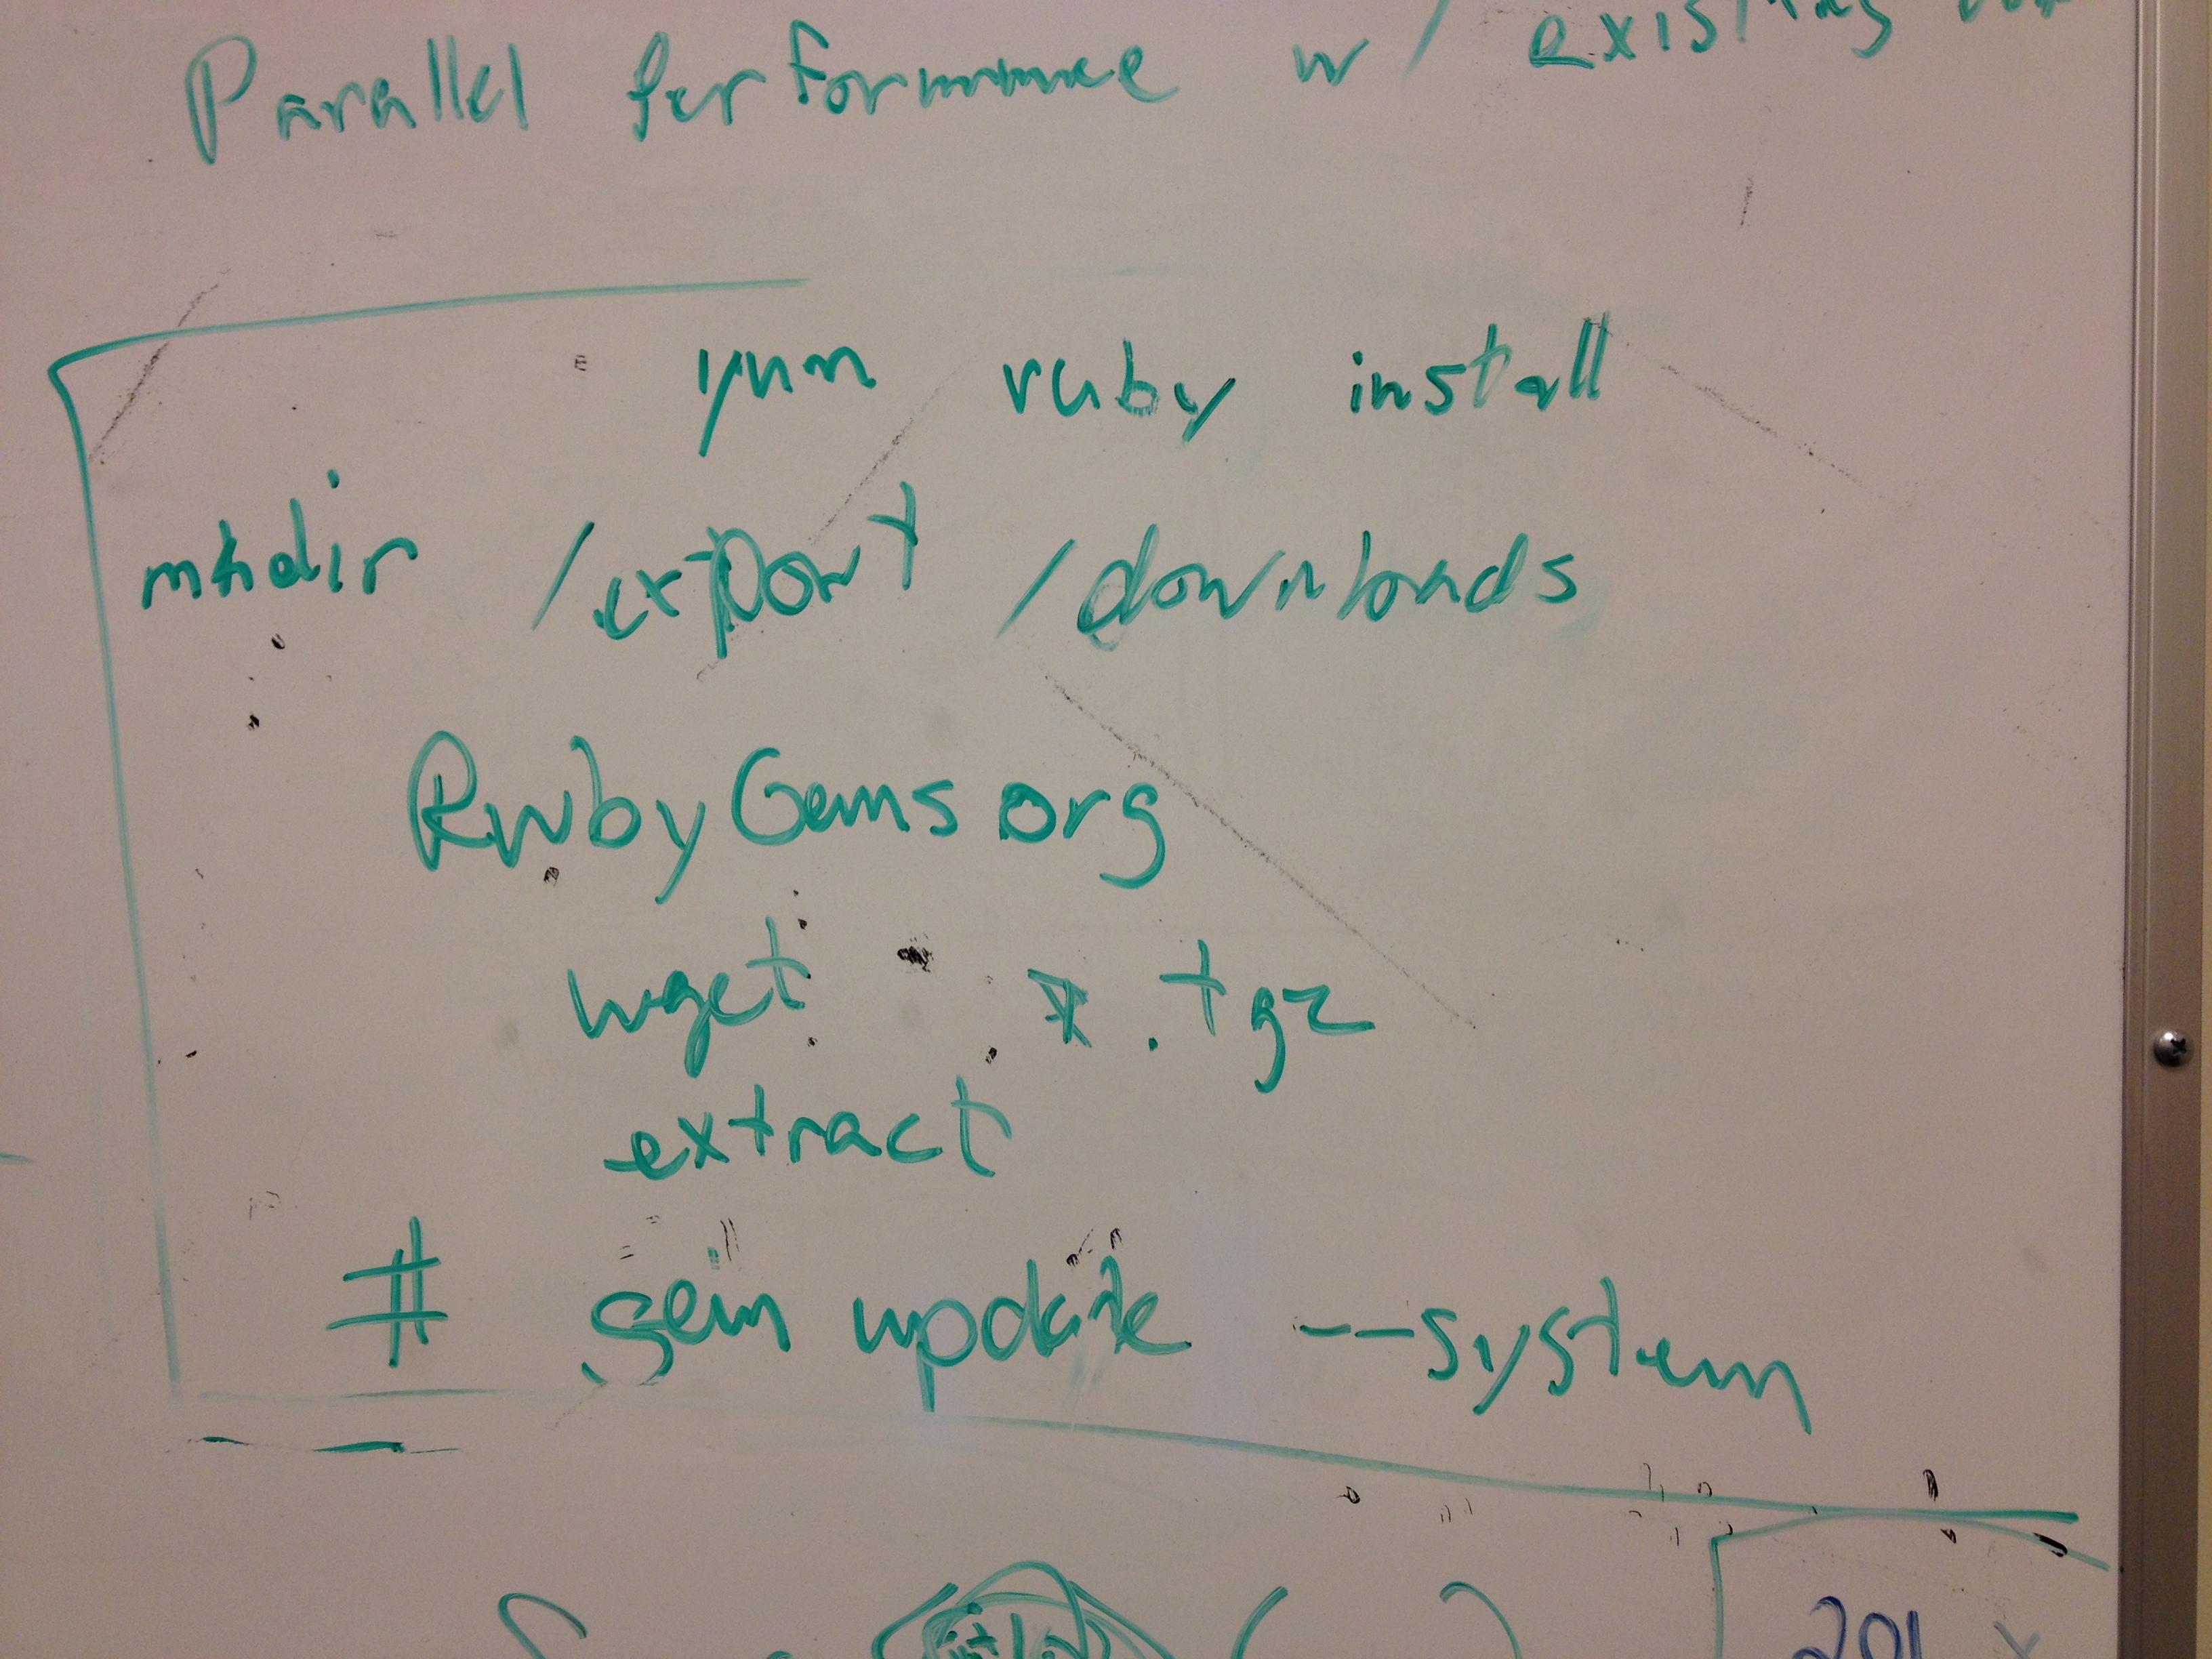 Parallel Performance w/ existing
yum ruby install
mkdir /export /downloads
RubyGems org
wget *.tgz
extract
# gem update --system
201